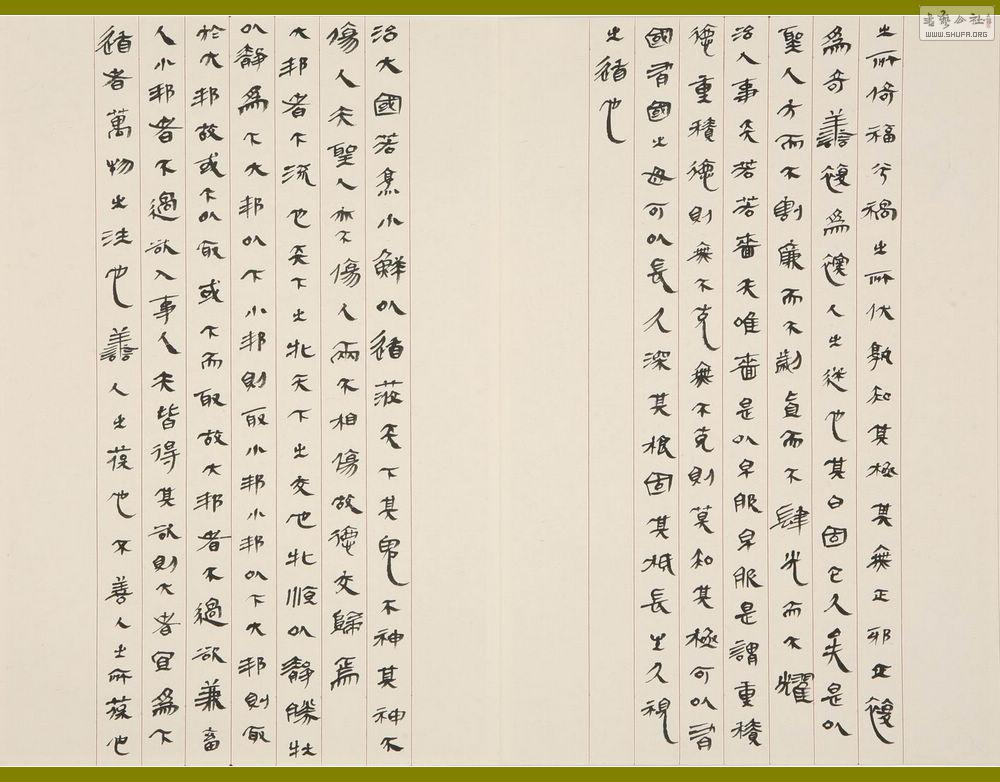 之所倚福兮禍之所伏孰知其極其無正邪正復
為奇善復為人之迷也其日固已久矣是以
聖人方而不割廉而不劌貞而不肆光而不耀
治人事天若若嗇夫唯嗇是以早服早服是謂重積
德重積德則無不克無不克則莫知其極可以有
國有國之母可以長久深其根固其柢長生久視
之道也
治大國若烹小鮮以道莅天下其鬼不神其神不
傷人夫聖人亦不傷人兩不相傷故德交歸焉
大邦者下流也天下之牝天下之交也牝順以靜勝牡
以靜為下大邦以下小邦則取小邦小邦以下大邦則取
於大邦故或下以取或下而取故大邦者不過欲兼畜
人小邦者不過欲入事人夫皆得其欲則大者宜為下
道者萬物之注也善人之葆也不善人之所葆也
WWW.SHUFA.ORG